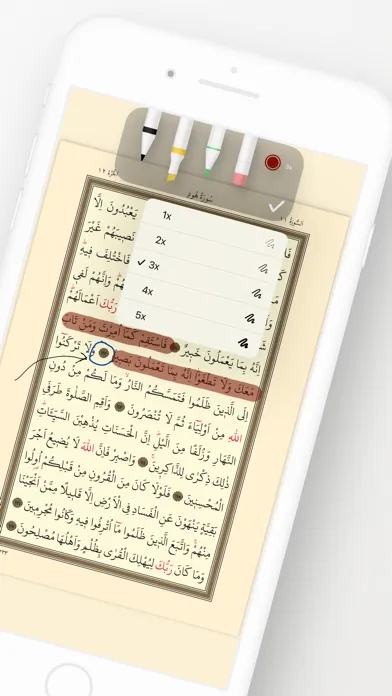 السُّورَةُ ١١ سُورَةُ هُودٍ الْجُزْءُ ١٢
3x
يَعْبُدُونَ اِلَّا
1x
نَصِيبَهُمْ غَيْرَ
2x
فَاخْتُلِفَ فِيهِ
3x
وَاِنَّهُمْ لَفِى
4x
رَبُّكَ اَعْمَالَهُمْ
5x
اِنَّهُ بِمَا يَعْمَلُونَ خَبِيرٌ فَاسْتَقِمْ كَمَا اُمِرْتَ وَمَنْ تَابَ
مَعَكَ وَلَا تَطْغَوْا اِنَّهُ بِمَا تَعْمَلُونَ بَصِيرٌ وَلَا تَرْكَنُوا
اِلَى الَّذِينَ ظَلَمُوا فَتَمَسَّكُمُ النَّارُ وَمَا لَكُمْ مِنْ دُونِ
اللّٰهِ مِنْ اَوْلِيَاءَ ثُمَّ لَا تُنْصَرُونَ وَاَقِمِ الصَّلٰوةَ طَرَفَىِ
النَّهَارِ وَزُلَفًا مِنَ الَّيْلِ اِنَّ الْحَسَنَاتِ يُذْهِبْنَ السَّيِّـَٔاتِ
ذٰلِكَ ذِكْرٰى لِلذَّاكِرِينَ وَاصْبِرْ فَاِنَّ اللّٰهَ لَا يُضِيعُ اَجْرَ
الْمُحْسِنِينَ فَلَوْلَا كَانَ مِنَ الْقُرُونِ مِنْ قَبْلِكُمْ اُولُوا
بَقِيَّةٍ يَنْهَوْنَ عَنِ الْفَسَادِ فِى الْاَرْضِ اِلَّا قَلِيلًا مِمَّنْ اَنْجَيْنَا
مِنْهُمْ وَاتَّبَعَ الَّذِينَ ظَلَمُوا مَا اُتْرِفُوا فِيهِ وَكَانُوا مُجْرِمِينَ
وَمَا كَانَ رَبُّكَ لِيُهْلِكَ الْقُرٰى بِظُلْمٍ وَاَهْلُهَا مُصْلِحُونَ
٢٣٣